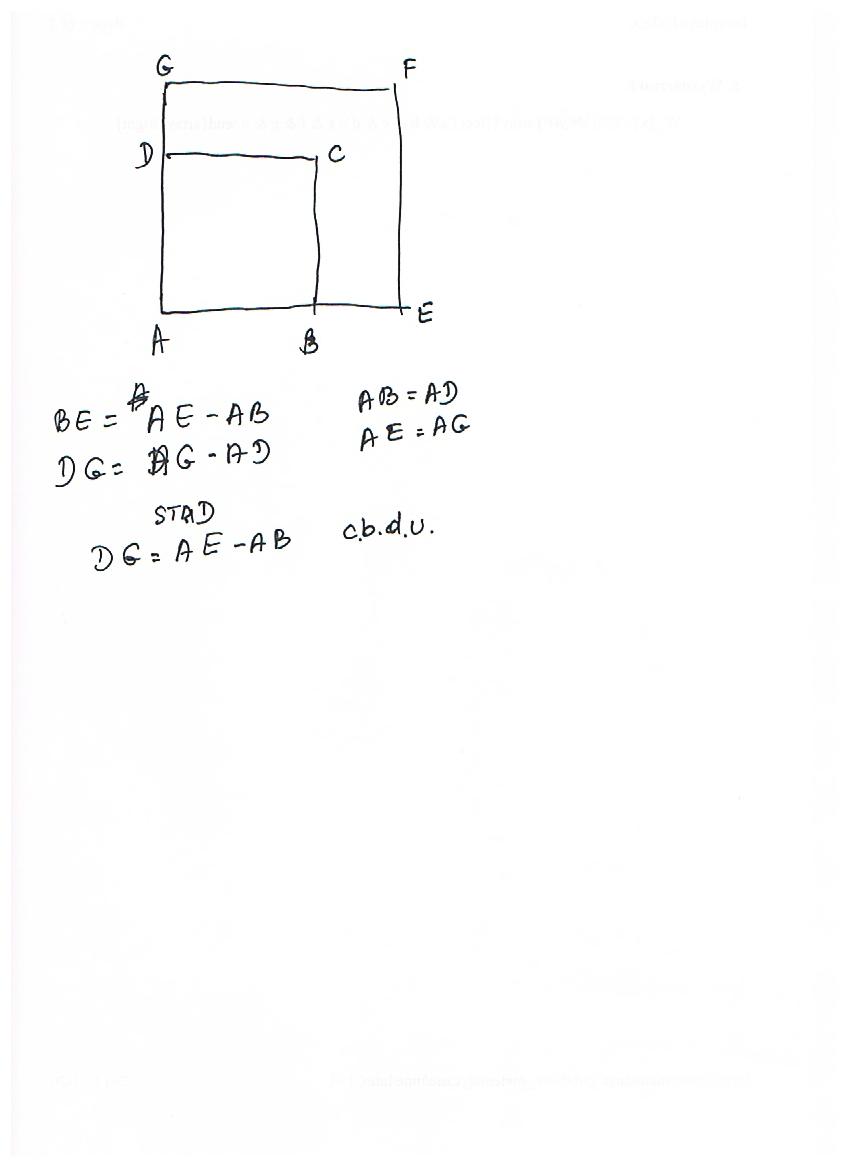 G F
D C
A B E
BE = AE - AB AB = AD
DG = AG - AD AE = AG
STAD
DG = AE - AB c.b.d.u.